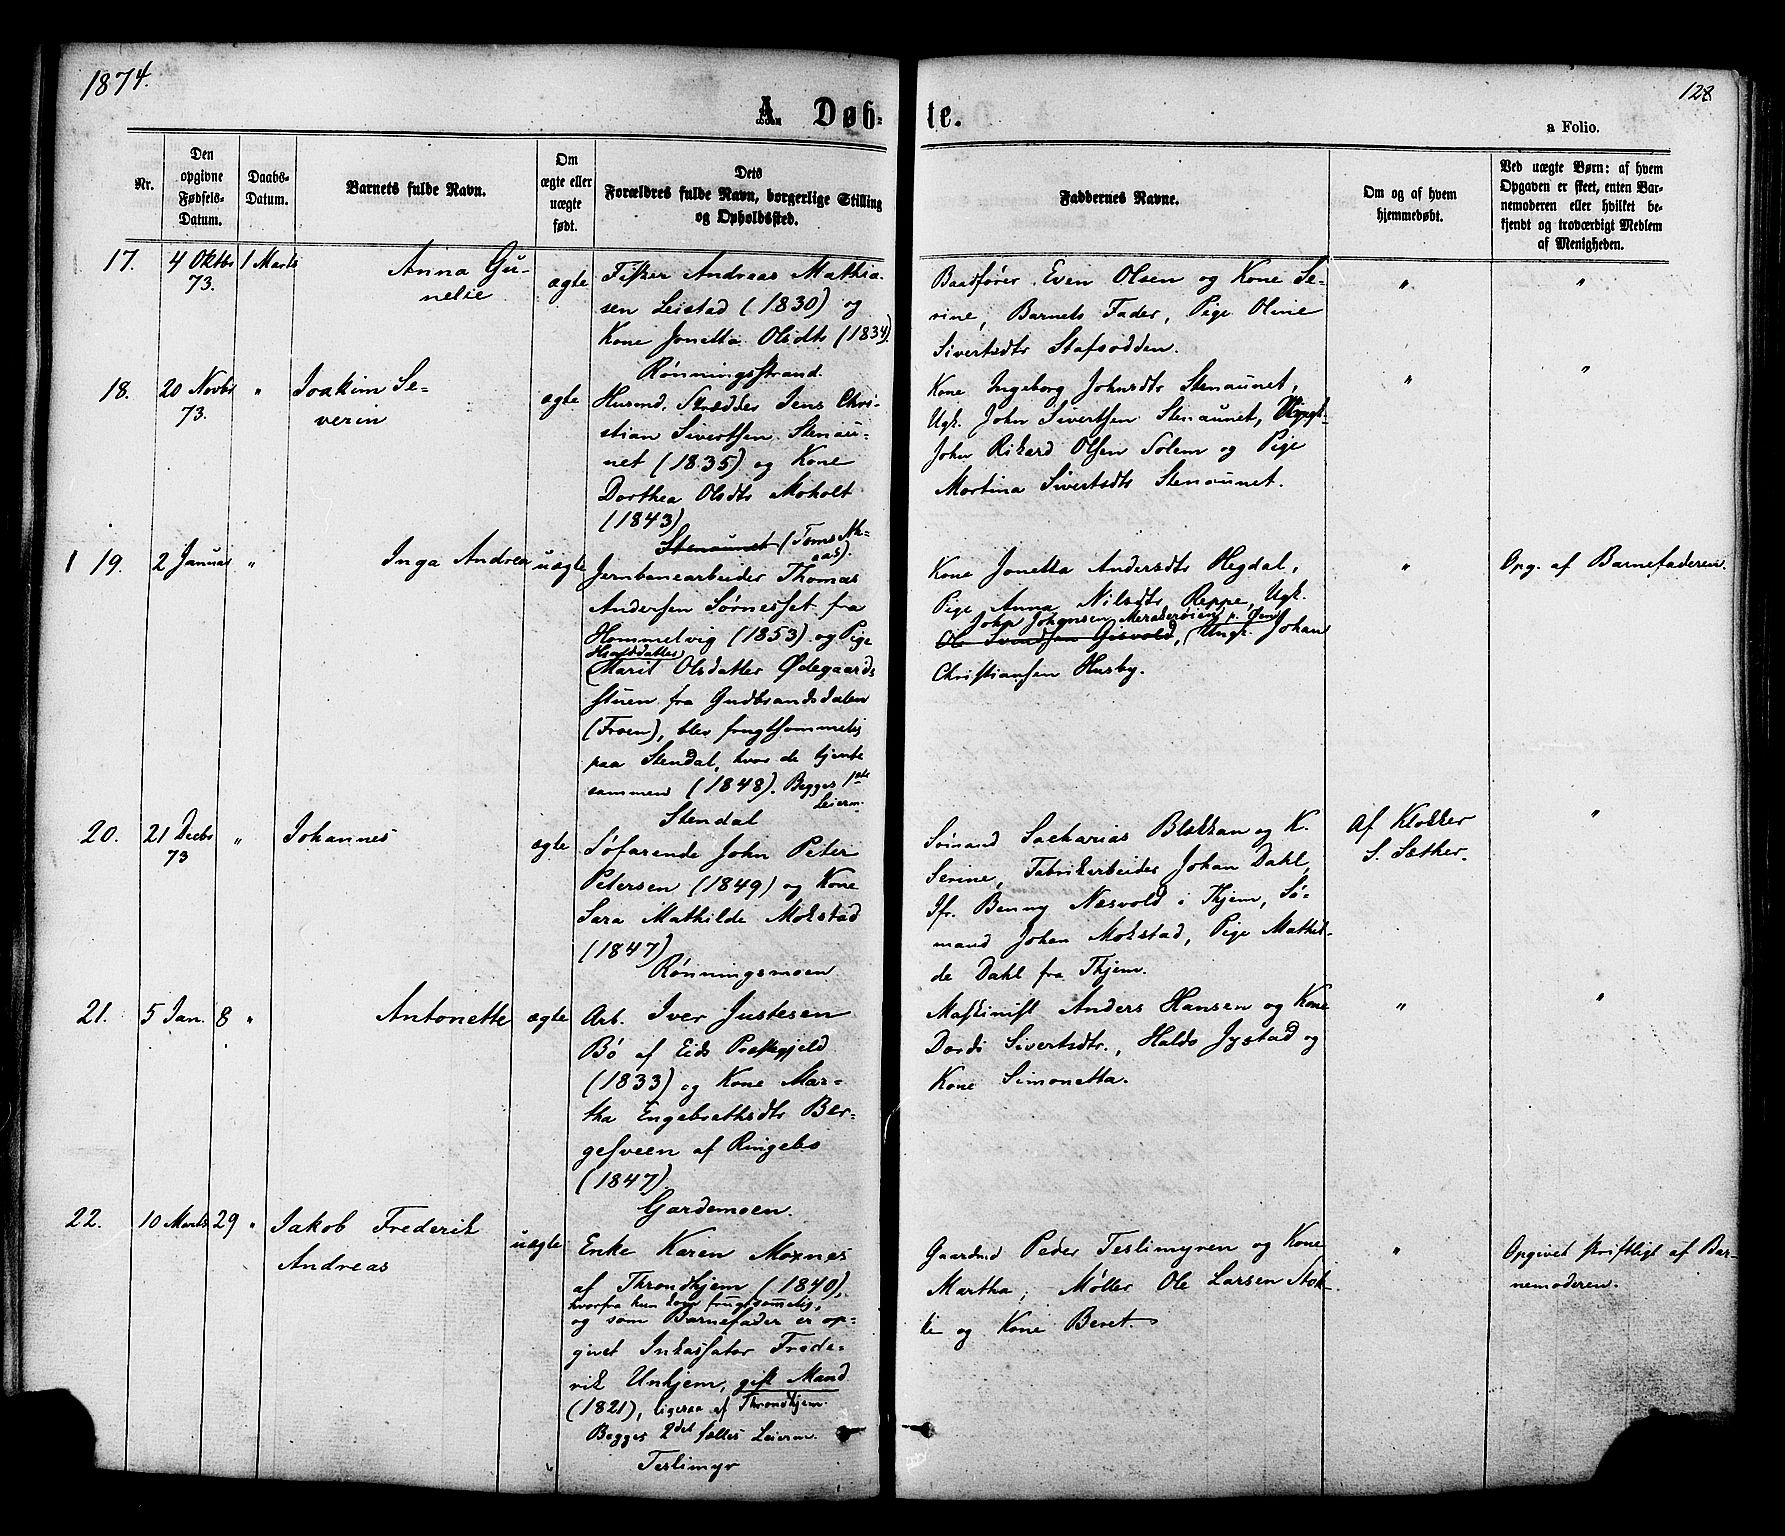 1874.
128
A Døb-
te.
a Folio.
Nr.
Den
opgivne
Fødsels-
Datum.
Daabs-
Datum.
Barnets fulde Navn.
Om
ægte eller
uægte
født.
Dets
Forældres fulde Navn, borgerlige Stilling
og Opholdssted.
Faddernes Navne.
Om og af hvem
hjemmedøbt.
Ved uægte Børn: af hvem
Opgaven er skeet, enten Bar-
nemoderen eller hvilket be-
kjendt og troværdigt Medlem
af Menigheden.
17.
4 Oktbr
73.
1 Marts
Anna Gu-
nelie
ægte
Fisker Andreas Mathia-
sen Leistad (1830) og
Kone Jonetta Olsdtr (1834).
Rønningsstrand.
Baadfører Even Olsen og Kone Se-
rine, Barnets Fader, Pige Oline
Sivertsdtr Stafsodden.
"
"
18.
20 Novbr
73.
"
Joakim Se-
verin
ægte
Husmd. Skrædder Jens Chri-
stian Sivertsen Stenau-
net (1835) og Kone
Dorthea Olsdtr Moholt
(1843)
Stenaunet
Kone Ingeborg Johnsdtr Stenaunet,
Ugk. John Sivertsen Stenaunet, Ungk.
John Rikard Olsen Solem og Pige
Martina Sivertsdtr Stenaunet.
"
"
1 19.
2 Januar
"
Inga Andrea
uægte
Jernbanearbeider Thomas
Andersen Sørnesset fra
Hommelvig (1853) og Pige
Marit Olsdatter Ødegaards
stuen fra Gudbrandsdalen
(Froen), blev frugtsommelig
paa Stendal, hvor de tjente
sammen (1848). Begges 1ste
Leierm.
Stendal
Kone Jonetta Andersdtr Hegdal,
Pige Anna Nilsdtr Reppe, Ugk.
John Johansen
Ole Svendsen Gisvold, Ungk. Johan
Christiansen Husby.
"
Opg. af Barnefaderen.
20.
21 Decbr
73
"
Johannes
ægte
Søfarende John Peter
Petersen (1849) og Kone
Sara Mathilde Mokstad
(1847)
Rønningsmoen
Sømand Sacharias Blekkan og K.
Serine, Fabrikarbeider Johan Dahl,
Jfr. Benny Næsvold i Thjem, Sø-
mand Johan Mokstad, Pige Mathil-
de Dahl fra Thjem.
Af Klokker
S. Sæther.
"
21.
5 Jan.
8 "
Antonette
ægte
Arb. Iver Justesen
Bø af Eids Præstegjeld
(1833) og Kone Mar-
tha Engebrethsdtr Ber-
gesveen af Ringebo
(1847)
Gardemoen.
Maskinist Anders Hansen og Kone
Dordi Sivertsdtr., Haldo Jystad og
Kone Simonetta.
"
"
22.
10 Marts
29 "
Jakob Frederik
Andreas
uægte
Enke Karen Moxnes
af Throndhjem (1840),
hvorfra hun kom frugtsommelig,
og som Barnefader er op-
givet Inkassator Frede-
rik Unhjem, gift Mand
(1821), ligesaa af Throndhjem.
Begges 2det fælles Leierm.
Teslimyr
Gaardmd Peder Teslimyren og Kone
Martha, Møller Ole Larsen Stok-
ke og Kone Beret.
"
Opgivet skriftligt af Bar-
nemoderen.